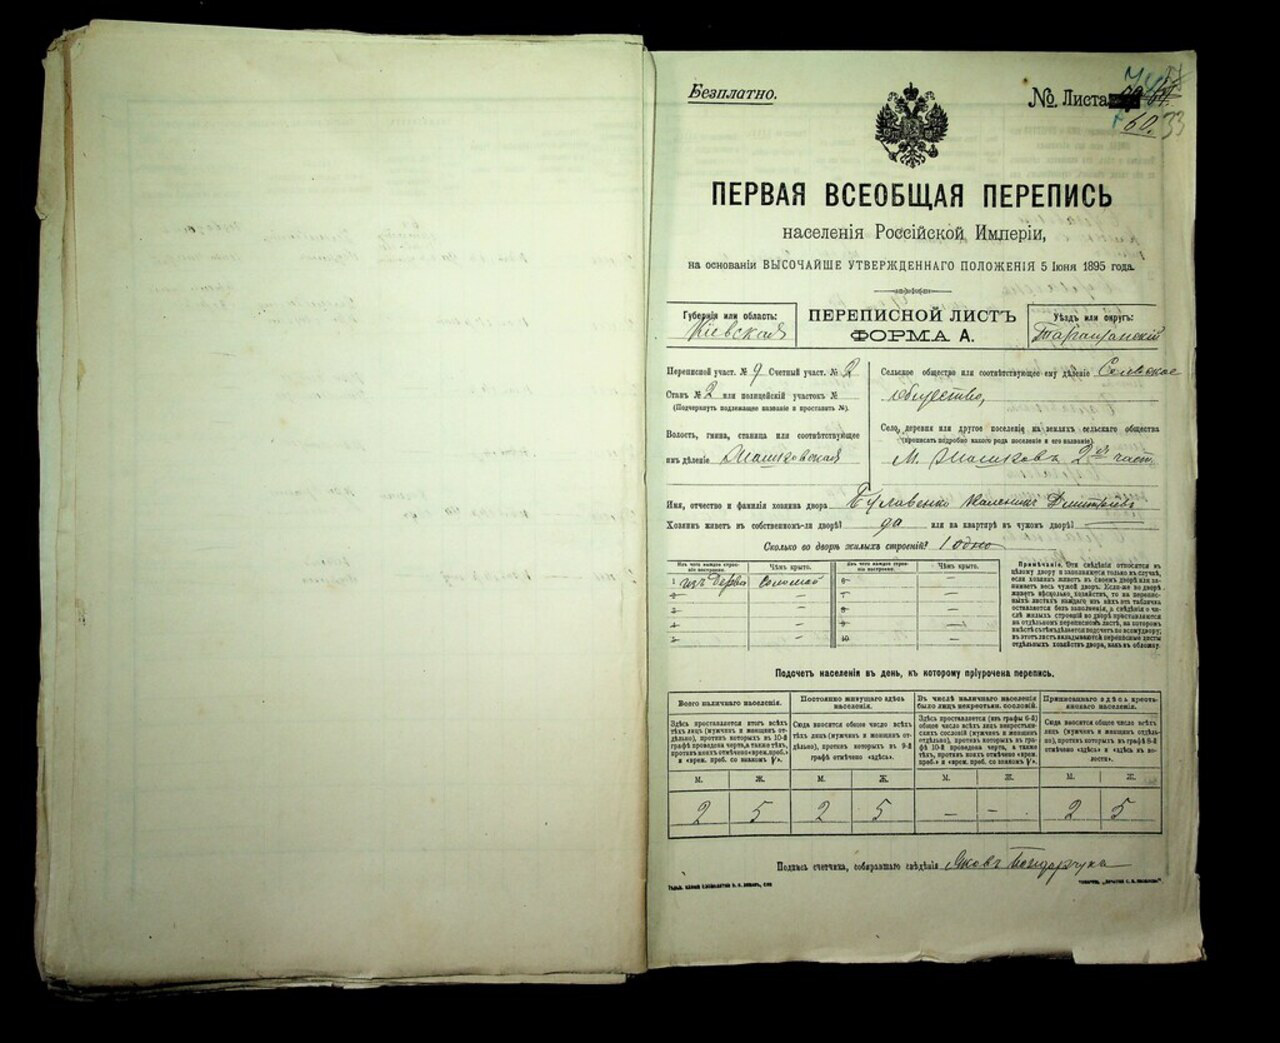 Безплатно.
№ Листа
60. 33
ПЕРВАЯ ВСЕОБЩАЯ ПЕРЕПИСЬ
населенія Россійской Имперіи,
на основаніи ВЫСОЧАЙШЕ УТВЕРЖДЕННАГО ПОЛОЖЕНІЯ 5 Іюня 1895 года.
Губернія или область:
Кіевская
ПЕРЕПИСНОЙ ЛИСТЪ
ФОРМА А.
Уѣздъ или округъ:
Таращанскій
Переписной участ. № 9 Счетный участ. № 2
Станъ № 2 или полицейскій участокъ №
(Подчеркнуть подлежащее названіе и проставить №).
Волость, гмина, станица или соотвѣтствующее
имъ дѣленіе
Сельское общество или соотвѣтствующее ему дѣленіе Сельское
общество,
Село, деревня или другое поселеніе на земляхъ сельскаго общества
(прописать подробно какого рода поселеніе и его названіе)
М. 2ой част.
Имя, отчество и фамилія хозяина двора Булавенко Каленикъ Дмитріевъ
Хозяинъ живетъ въ собственномъ-ли дворѣ? да или на квартирѣ въ чужомъ дворѣ? —
Сколько во дворѣ жилыхъ строеній? 1 одно
Изъ чего каждое строеніе построено.
Чѣмъ крыто.
Изъ чего каждое строеніе построено.
Чѣмъ крыто.
1 изъ дерева соломой 6 —
2 — 7 —
3 — 8 —
4 — 9 —
5 — 10 —
Примѣчаніе. Эти свѣдѣнія относятся къ
цѣлому двору и заполняются только въ случаѣ,
если хозяинъ живетъ въ своемъ дворѣ или занимаетъ
весь чужой дворъ. Если-же во дворѣ
живетъ нѣсколько хозяйствъ, то на переписныхъ
листахъ каждаго изъ нихъ эта табличка
оставляется безъ заполненія, а свѣдѣнія о числѣ
жилыхъ строеній во дворѣ проставляются
на отдѣльномъ переписномъ листѣ, на которомъ
вмѣстѣ съ тѣмъ дѣлается подсчетъ по всему двору;
въ этотъ листъ вкладываются переписные листы
отдѣльныхъ хозяйствъ двора, какъ въ обложку.
Подсчетъ населенія въ день, къ которому пріурочена перепись.
Всего наличнаго населенія.
Постоянно живущаго здѣсь населенія.
Въ числѣ наличнаго населенія было лицъ некрестьян. сословій.
Приписаннаго здѣсь крестьянскаго населенія.
Здѣсь проставляется итогъ всѣхъ
тѣхъ лицъ (мужчинъ и женщинъ отдѣльно),
противъ которыхъ въ 10-й
графѣ проведена черта, а также тѣхъ,
противъ коихъ отмѣчено «врем. преб.»
и «врем. преб. со знакомъ V».
Сюда вносится общее число всѣхъ
тѣхъ лицъ (мужчинъ и женщинъ отдѣльно),
противъ которыхъ въ 9-й
графѣ отмѣчено «здѣсь».
Здѣсь проставляется (изъ графы 6-й)
общее число всѣхъ лицъ некрестьянскихъ
сословій (мужчинъ и женщинъ
отдѣльно), противъ которыхъ въ графѣ
10-й проведена черта, а также
тѣхъ, противъ коихъ отмѣчено «врем.
преб.» и «врем. преб. со знакомъ V».
Сюда вносится общее число всѣхъ
лицъ (мужчинъ и женщинъ отдѣльно),
противъ которыхъ въ графѣ 8-й
отмѣчено «здѣсь» и «здѣсь въ волости».
М. Ж. М. Ж. М. Ж. М. Ж.
2 5 2 5 — — 2 5
Подпись счетчика, собиравшаго свѣдѣнія Яковъ Бондарчука